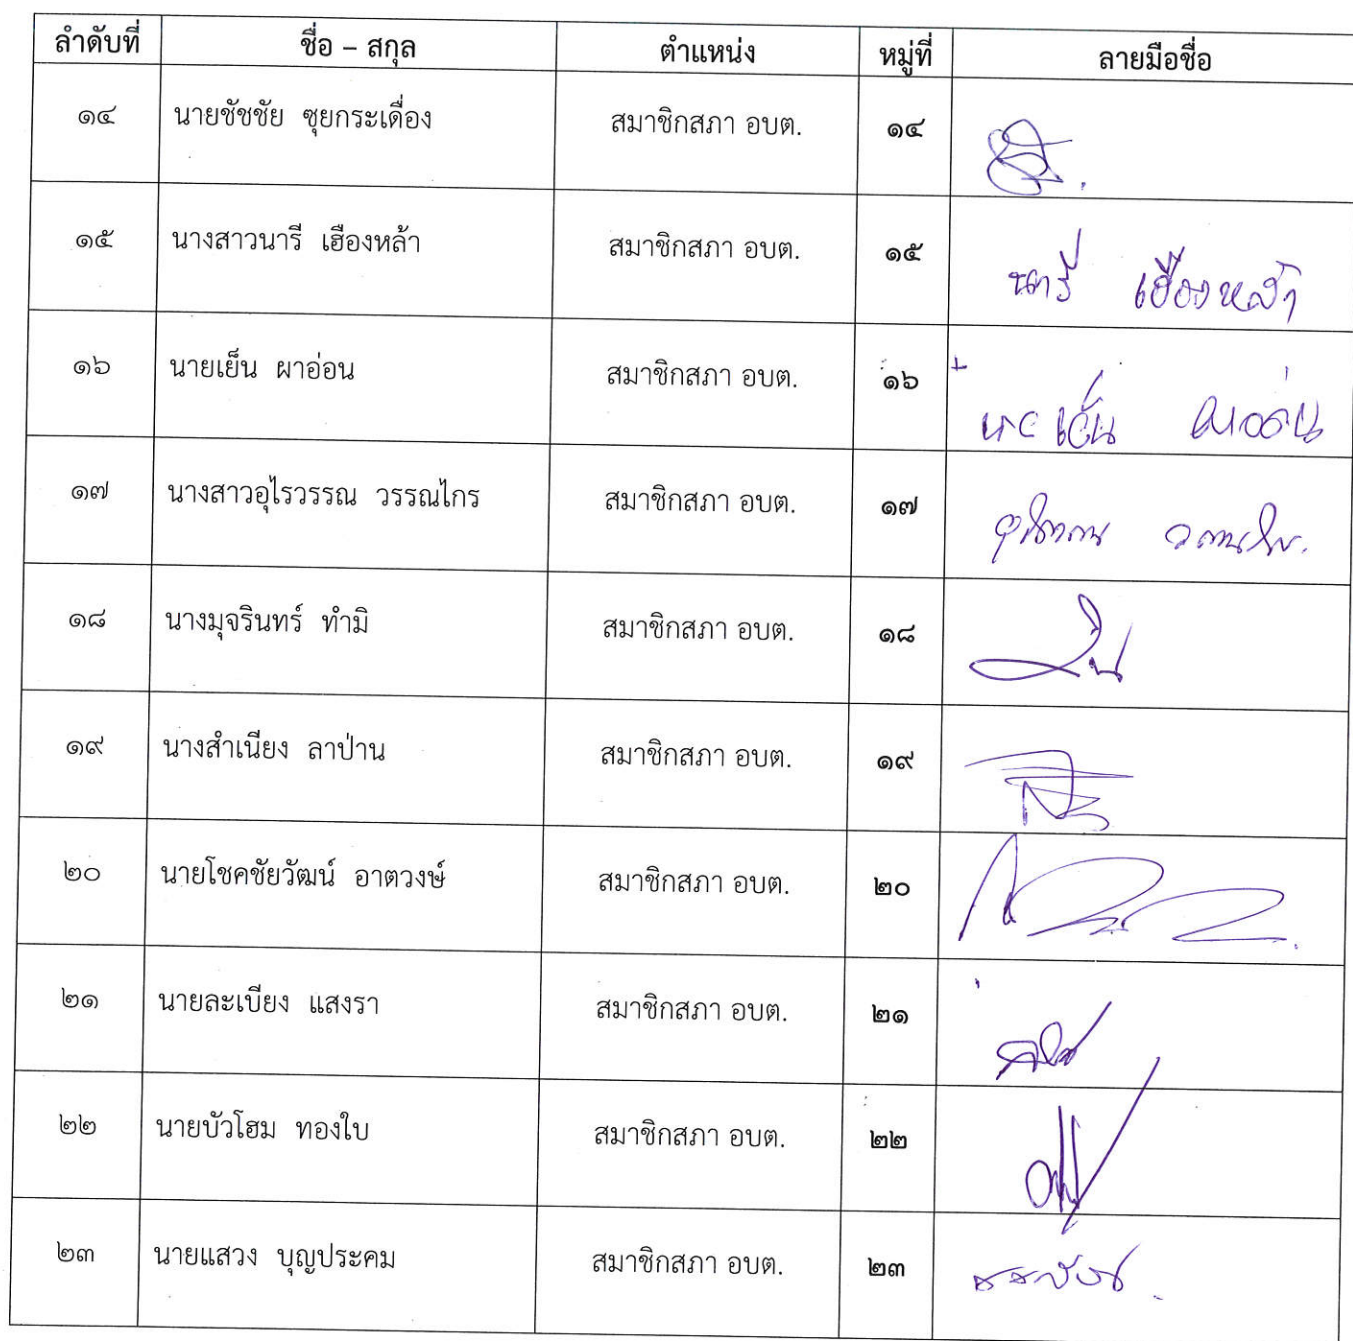 ลำดับที่ ชื่อ – สกุล ตำแหน่ง หมู่ที่ ลายมือชื่อ
๑๔ นายชัชชัย ซุยกระเดื่อง สมาชิกสภา อบต. ๑๔
๑๕ นางสาวนารี เฮืองหล้า สมาชิกสภา อบต. ๑๕ นารี เฮืองหล้า
๑๖ นายเย็น ผาอ่อน สมาชิกสภา อบต. ๑๖
๑๗ นางสาวอุไรวรรณ วรรณไกร สมาชิกสภา อบต. ๑๗
๑๘ นางมุจรินทร์ ทำมิ สมาชิกสภา อบต. ๑๘
๑๙ นางสำเนียง ลาป่าน สมาชิกสภา อบต. ๑๙
๒๐ นายโชคชัยวัฒน์ อาตวงษ์ สมาชิกสภา อบต. ๒๐
๒๑ นายละเบียง แสงรา สมาชิกสภา อบต. ๒๑
๒๒ นายบัวโฮม ทองใบ สมาชิกสภา อบต. ๒๒
๒๓ นายแสวง บุญประคม สมาชิกสภา อบต. ๒๓